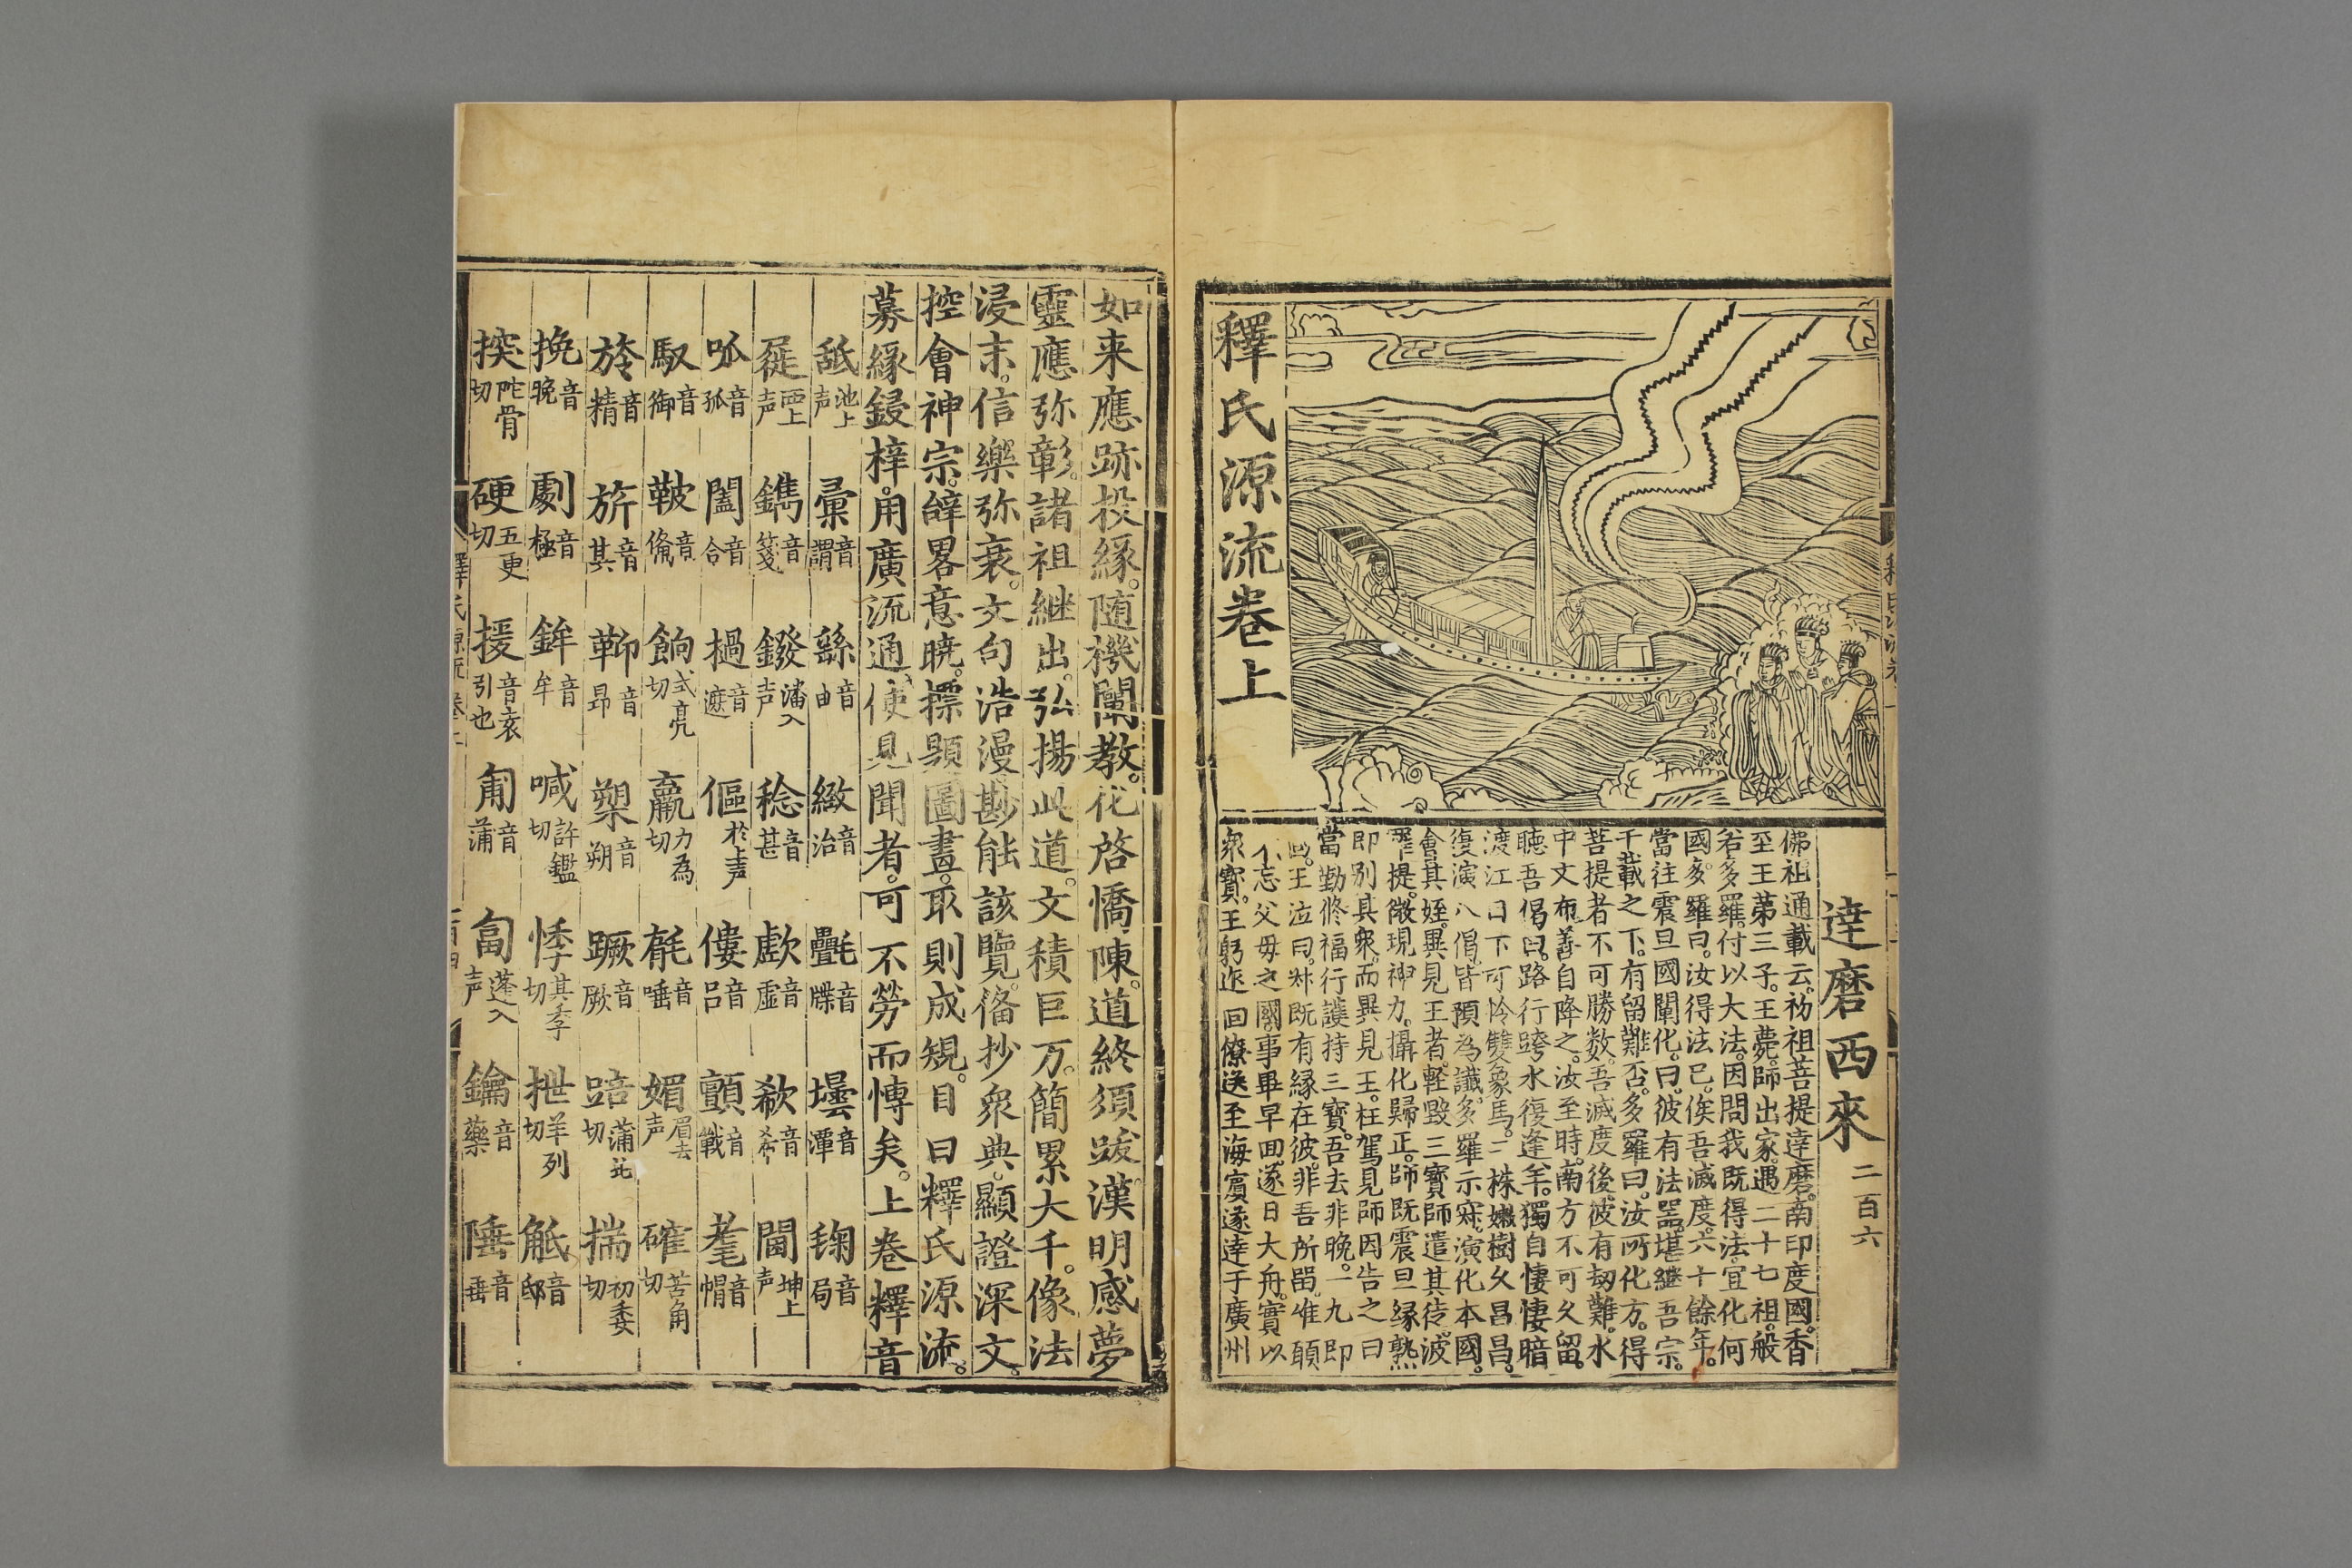 達磨西來 二百六
佛祖通載云。初祖菩提達磨。南印度國。香
至王第三子。王薨。師出家。遇二十七祖。般
若多羅。付以大法。因問我既得法。宜化何
國。多羅曰。汝得法已。俟吾滅度。六十餘年。
當往震旦國闡化。曰。彼有法器。堪繼吾宗。
千載之下。有留難否。多羅曰。汝所化方。得
菩提者不可勝数。吾滅度後。彼有劫難。水
中文布。善自降之。汝至時。南方不可久留。
聽吾偈曰。路行跨水復逢羊。獨自悽悽暗
渡江日下可怜雙象馬。二株嫩樹久昌昌。
復演八偈。皆預為讖。多羅示寂。演化本國。
會其姪。異見王者。軽毀三寶師遣其徒。波
羅提。微現神力。攝化歸正。師既震旦緣熟
即別其衆。而異見王。枉駕見師因告之曰
當勤修福行護持三寶。吾去非晚。一九即
回。王泣曰。叔既有緣。在彼。非吾所畱。惟願
不忘父母之國。事畢早回。遂日大舟。實以
衆寶。王躬迩回僚送至海濱遂達于廣州
釋氏源流卷上
如来應跡投緣。随機闡教。化啓憍陳。道終須跋。漢明感夢
靈應弥彰。諸祖継出。弘揚此道。文積巨万。簡累大千。像法
浸末。信樂弥衰。文句浩漫。尠能該覽。俻抄衆典。顯證深文。
控會神宗。辝畧意暁。摽顯圖畫。取則成規。目曰釋氏源流。
募緣鋟梓。用廣流通。使見聞者。可不勞而慱矣。上卷釋音
舐池上声 彙音謂 繇音由 緻音治 氎音牒 壜音潭 毱音局
屣西上声 鐫音箋 鏺潘入声 稔音甚 歔音虛 欷音希 閫坤上声
呱音孤 闔音合 檛音遮 傴於上声 僂音吕 顫音戰 耄音帽
馭音御 鞁音俻 餉式亮切 羸力為切 毻音唾 媚眉去声 確苦角切
旍音精 旂音其 䩕音昂 槊音朔 蹶音厥 踣蒲北切 揣初委切
挽音晚 劇音極 鉾音牟 喊許鑑切 悸其季切 抴羊列切 觝音邸
揬陀骨切 硬五更切 援音袁引也 匍音蒲 匐蓬入声 鑰音藥 陲音垂